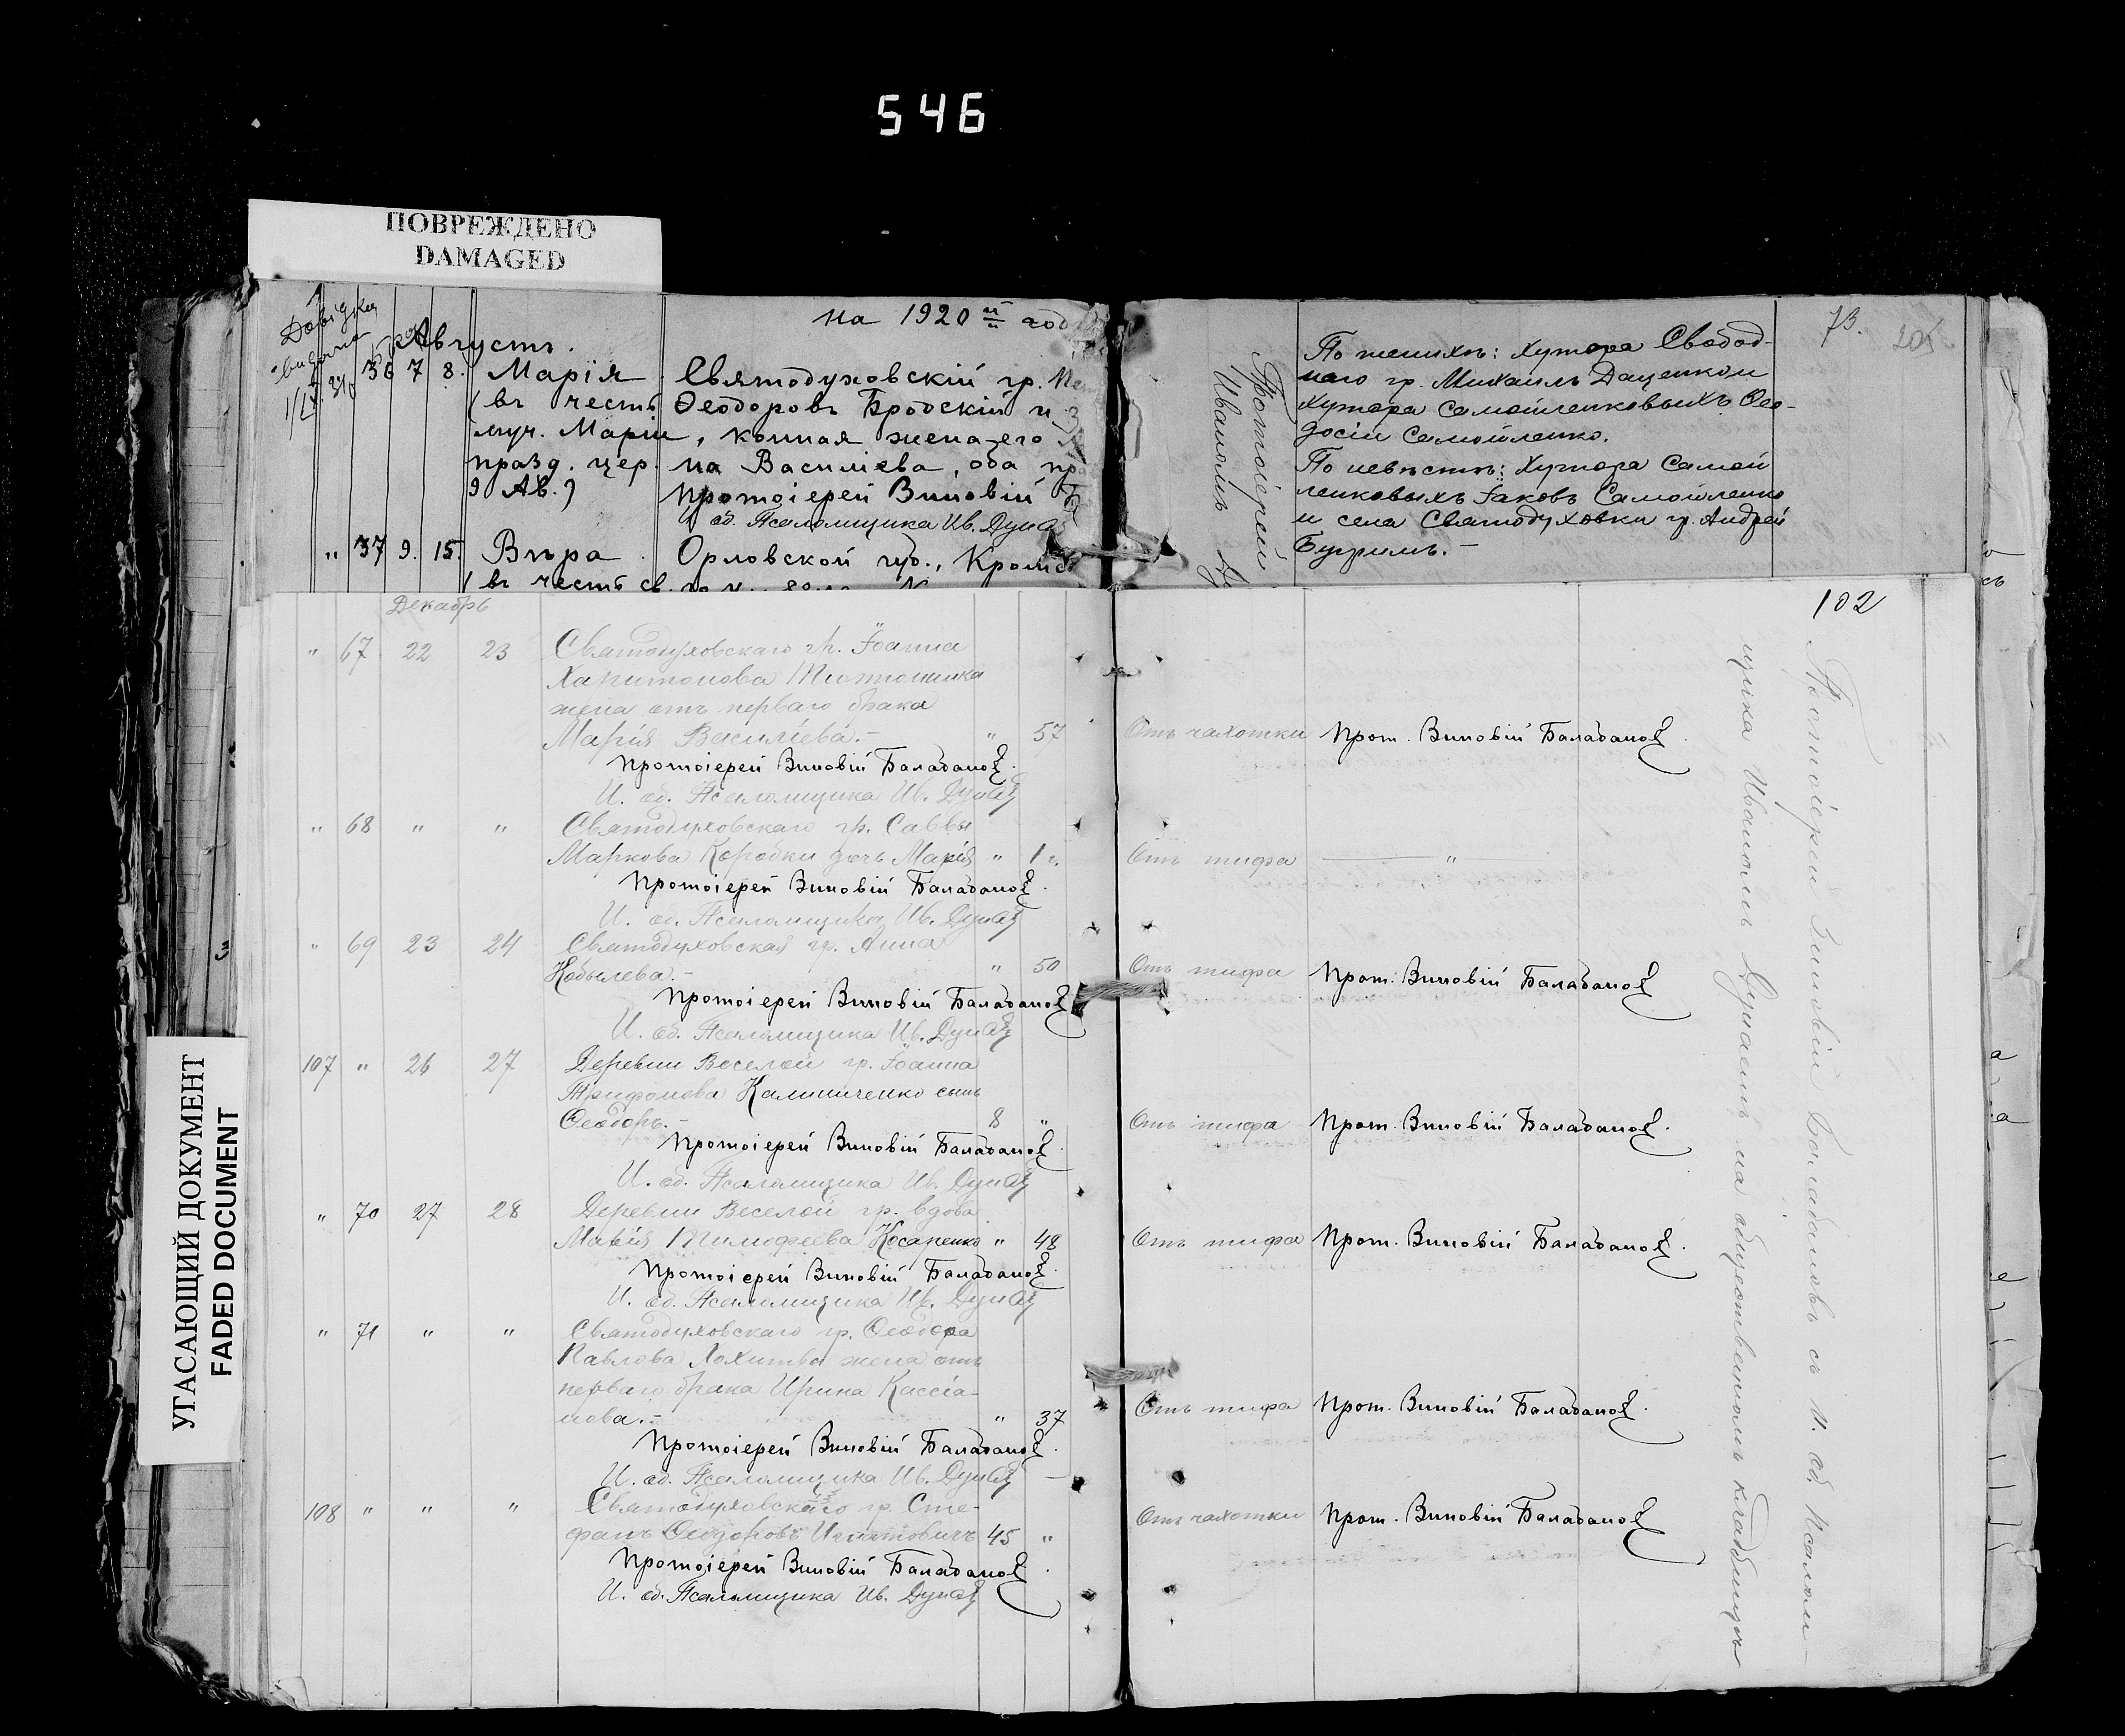 546
ПОВРЕЖДЕНО
DAMAGED
на 1920 ый год
Августъ.
36 7 8. Марія Святодуховскій гр.
(въ честь Ѳеодоровъ Бродскій и
муч. Маріи, конная жена его
празд. цер. на Василіева, оба пр
9 Ав.) Протоіерей Зиновій Б
об. Псаломщика Ив. Дуна
" 37 9. 15. Вѣра Орловской губ., Кромск
(въ честь св.
73.
205
По женихѣ: хутора Свобод-
наго гр. Михаилъ Даценко и
хутора Самойленковыхъ Ѳео-
досій Самойленко.
По невѣстѣ: Хутора Самой
ленковыхъ Іаковъ Самойленко
и села Святодуховки гр. Андрей
Бугримъ.-
Протоіерей
Иваномъ
УГАСАЮЩИЙ ДОКУМЕНТ
FADED DOCUMENT
102
Декабрь
" 67 22 23 Святодуховскаго гр. Іоанна
Харитонова жена отъ перваго брака
Марія Василіева.- " 57 Отъ чахотки Прот. Зиновій Балабановъ.
Протоіерей Зиновій Балабановъ.
И. об. Псаломщика Ив. Дунай
" 68 " " Святодуховскаго гр. Саввы
Маркова Коробки дочь Марія " 1 г. Отъ тифа "
Протоіерей Зиновій Балабановъ.
И. об. Псаломщика Ив. Дунай
" 69 23 24 Святодуховская гр. Анна
Кобылева.- " 50 Отъ тифа Прот. Зиновій Балабановъ
Протоіерей Зиновій Балабановъ
И. об. Псаломщика Ив. Дунай
107 " 26 27 Деревни Веселой гр. Іоанна
Трифонова Калиниченко сынъ
Ѳеодоръ.- 8 " Отъ тифа Прот. Зиновій Балабановъ.
Протоіерей Зиновій Балабановъ.
И. об. Псаломщика Ив. Дунай
" 70 27 28 Деревни Веселой гр. вдова
Марія Тимофеева Косаренко " 48 Отъ тифа Прот. Зиновій Балабановъ.
Протоіерей Зиновій Балабановъ.
И. об. Псаломщика Ив. Дунай
" 71 " " Святодуховскаго гр. Ѳеодора
Павлова жена отъ
перваго брака Ирина Кассіа-
нова.- " 37 Отъ тифа Прот. Зиновій Балабановъ.
Протоіерей Зиновій Балабановъ.
И. об. Псаломщика Ив. Дунай
108 " " " гр. Сте-
фанъ Ѳеодоровъ Игнатовичъ 45 " Отъ чахотки Прот. Зиновій Балабановъ
Протоіерей Зиновій Балабановъ.
И. об. Псаломщика Ив. Дунай
Протоіерей Зиновій Балабановъ съ И. об. Псалом-
щика Иваномъ Дунаемъ на общественномъ кладбищѣ